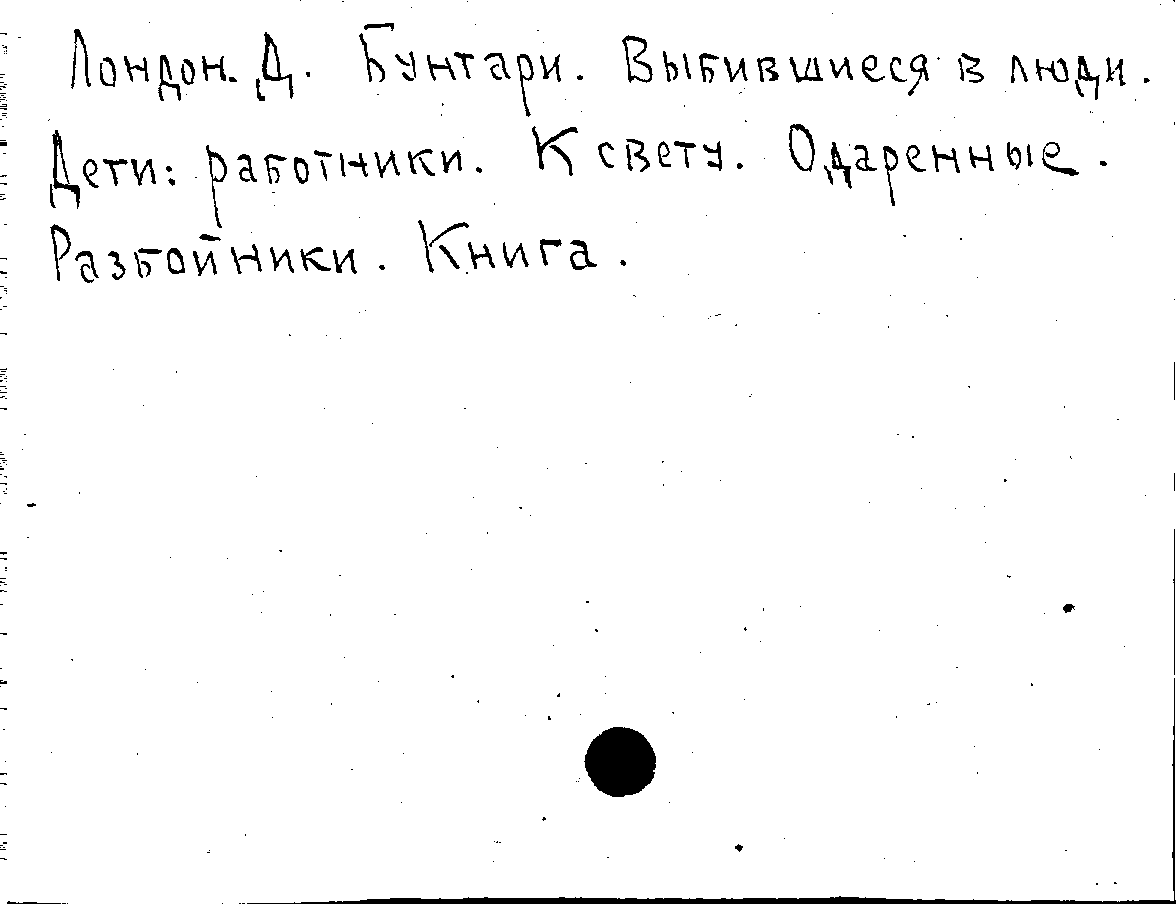 Лондон. Д. Бунтари. Выбившиеся в люди.
Дети: работники. К свету. Одаренные.
Разбойники. Книга.